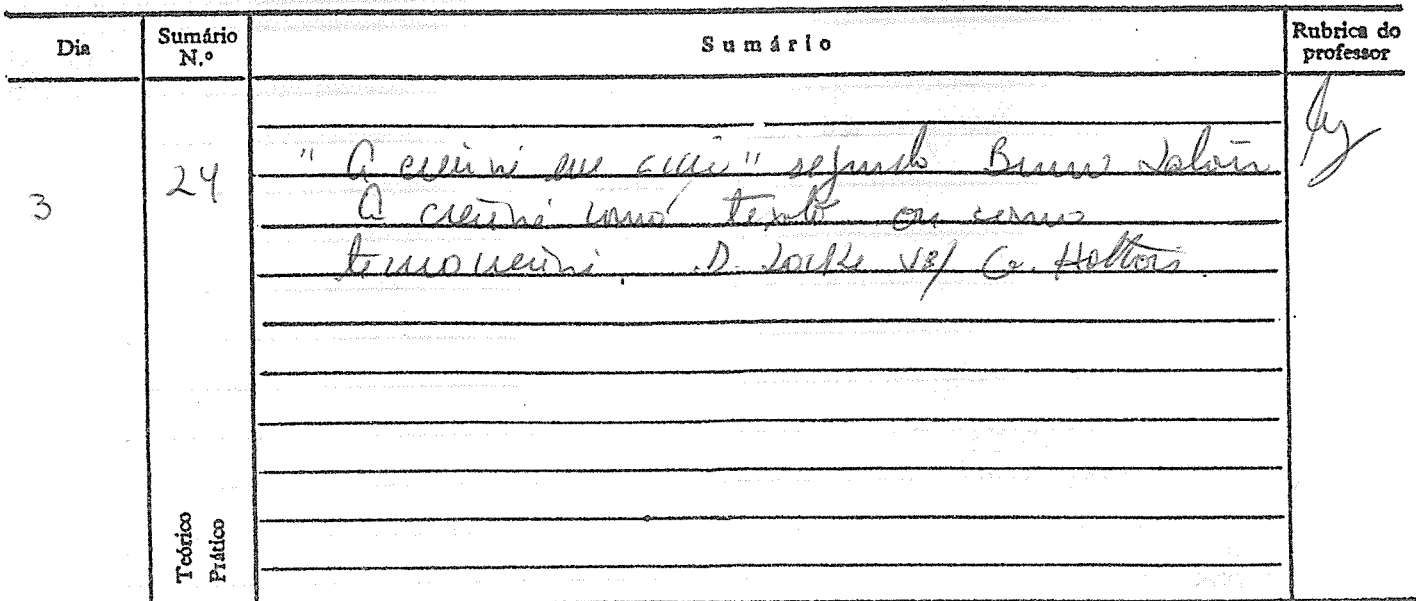 Dia
Sumário N.º
Sumário
Rubrica do professor
3
24
"A ciência em acção" segundo Bruno Latour
A ciência como texto ou como
. D. Locke vs/ G. Holton.
Teórico
Prático